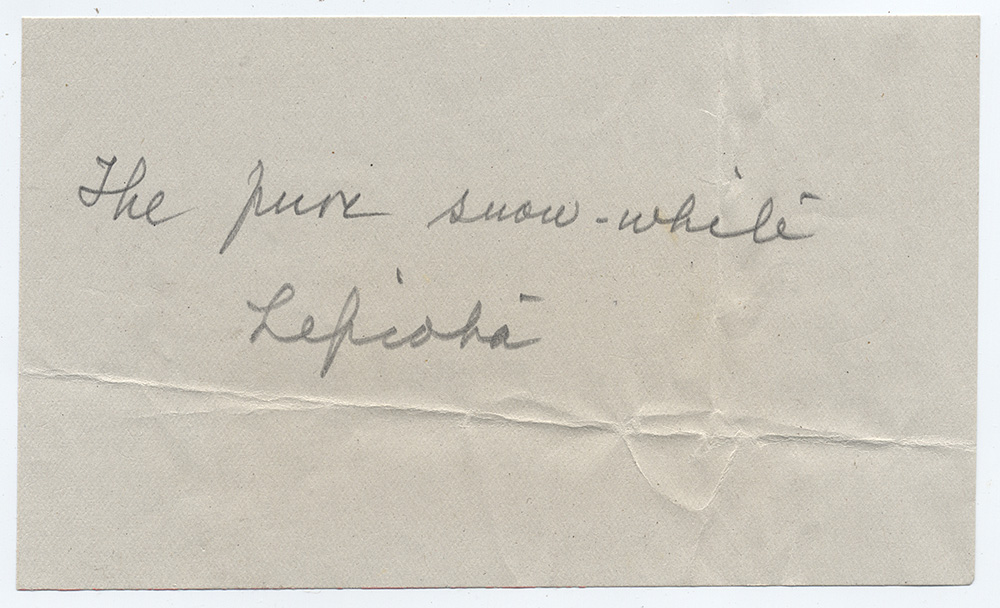 The pure snow-white
Lepiota